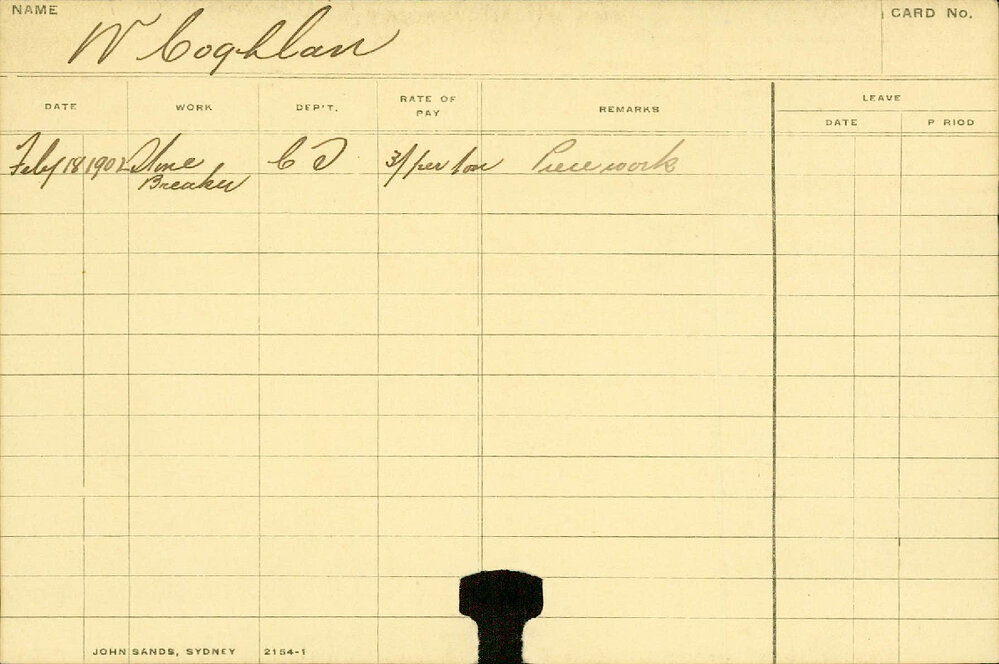 NAME
W Coghlan
CARD No.
DATE
WORK
DEP'T.
RATE OF PAY
REMARKS
LEAVE
DATE
P RIOD
Feby 18 1902
Stone
Breaker
3/ per ton
Piece work
JOHN SANDS, SYDNEY 2154-1